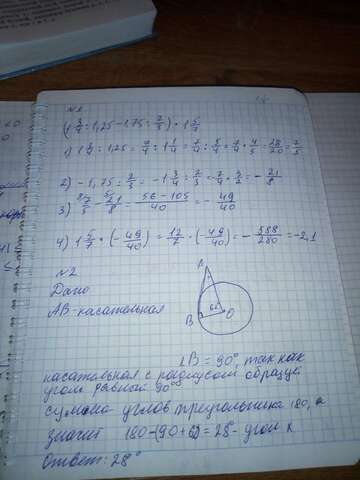 №1
(1 3/4 : 1,25 - 1,75 : 2/3) · 1 5/7
1) 1 3/4 : 1,25 = 7/4 : 1 1/4 = 7/4 : 5/4 = 7/4 · 4/5 = 28/20 = 7/5
2) - 1,75 : 2/3 = - 1 3/4 : 2/3 = - 7/4 · 3/2 = - 21/8
3) 7/5 - 21/8 = 56 - 105/40 = - 49/40
4) 1 5/7 · (- 49/40) = 12/7 · (- 49/40) = - 588/280 = -2,1
№2
Дано
АВ-касательная
A
B
O
62
∠B = 90°, так как
касательная с радиусом образуе
угол равный 90°
сумма углов треугольника 180, а
значит 180-(90+62)=28°- угол
Ответ: 28°